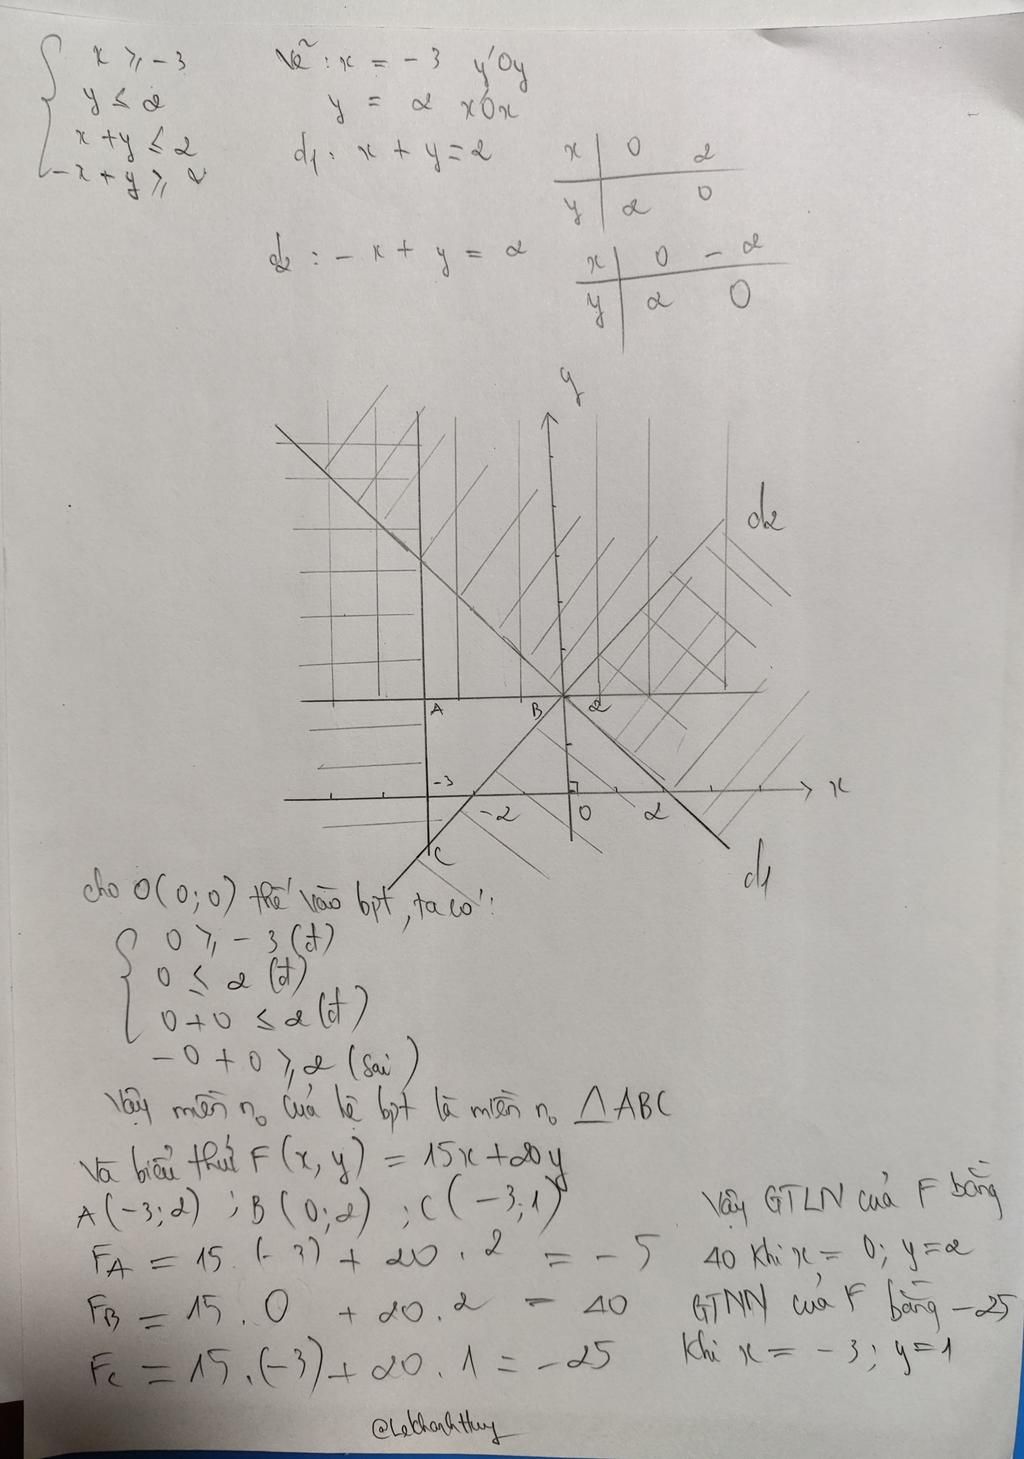 x ≥ -3    Vẽ: x = -3    y'Oy
y ≤ 2    y = 2    x'Ox
x + y ≤ 2    d1: x + y = 2    x | 0    2
-x + y ≥ 2    y | 2    0
d2: -x + y = 2    x | 0    -2
y | 2    0
y
d2
A    B    2
-3
-2    0    2    x
C
d1
cho O(0;0) thế vào bpt, ta có:
0 ≥ -3 (đ)
0 ≤ 2 (đ)
0+0 ≤ 2 (đ)
-0+0 ≥ 2 (sai)
Vậy miền no của hệ bpt là miền no △ABC
Và biểu thức F(x,y) = 15x+20y
A(-3;2) ; B(0;2) ; C(-3;1)
FA = 15.(-3) + 20.2 = -5
FB = 15.0 + 20.2 = 40
Fc = 15.(-3) + 20.1 = -25
Vậy GTLN của F bằng
40 khi x = 0; y=2
GTNN của F bằng -25
khi x = -3; y=1
@LeKhanhHuy